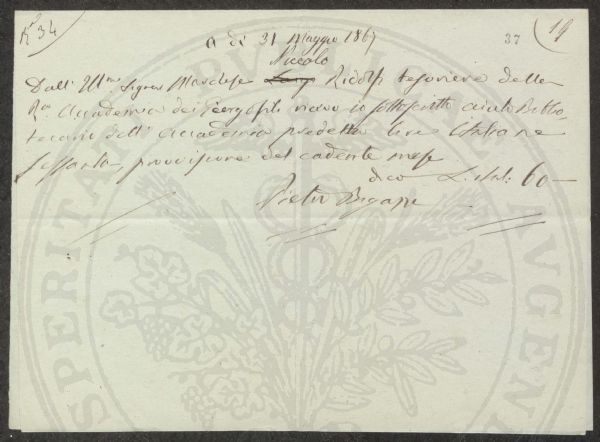 N° 34
19
37
A dì 31 Maggio 1867
Niccolò
Dall' Ill.mo Signor Marchese Ridolfi tesoriere della
R.a Accademia dei Georgofili ricevo io sottoscritto aiuto Biblio-
tecario dell' Accademia predetta lire italiane
sessanta, provvisione del cadente mese
dico L. ital: 60—
Pietro Bigazzi
PROSPERITATI AUGENDAE